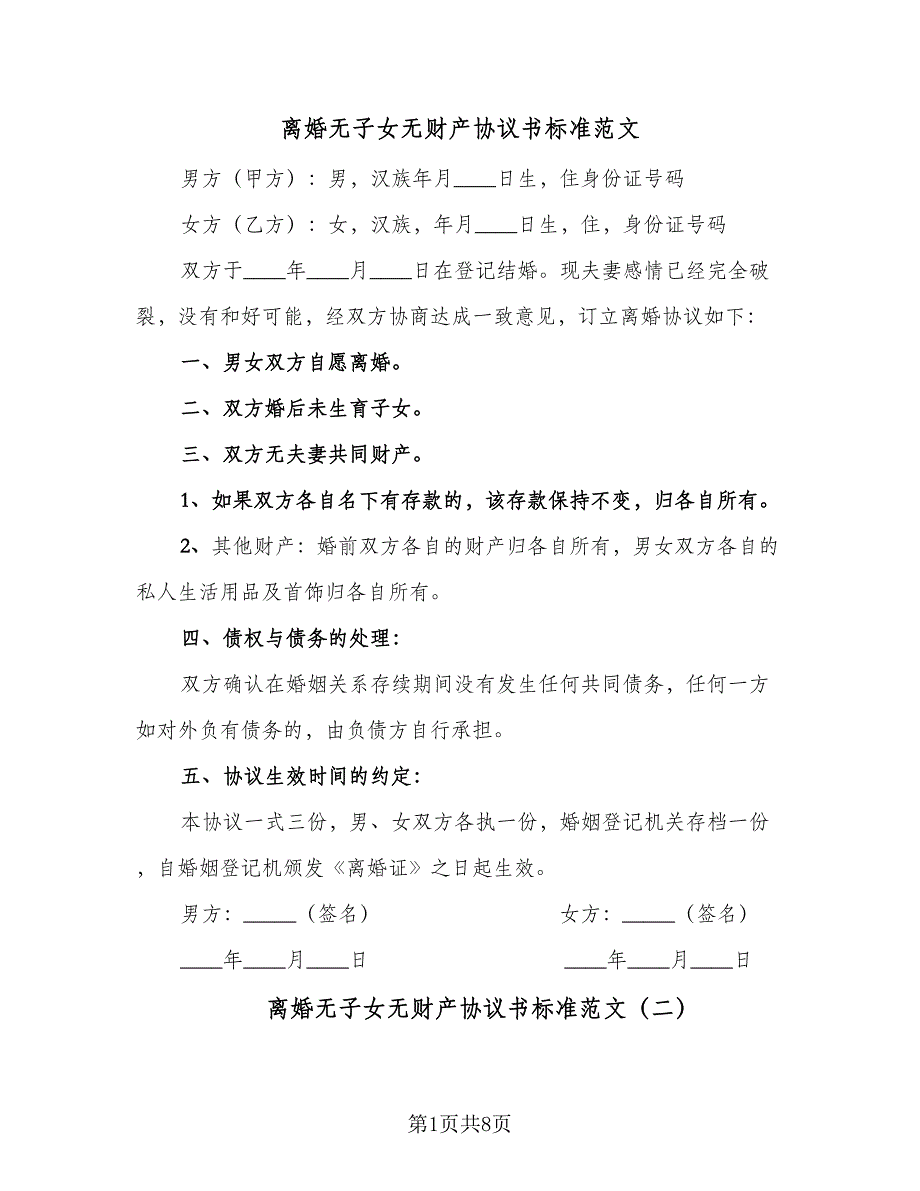 离婚无子女无财产协议书标准范文
男方（甲方）：男，汉族年月____日生，住身份证号码
女方（乙方）：女，汉族，年月____日生，住，身份证号码
双方于____年____月____日在登记结婚。现夫妻感情已经完全破
裂，没有和好可能，经双方协商达成一致意见，订立离婚协议如下：
一、男女双方自愿离婚。
二、双方婚后未生育子女。
三、双方无夫妻共同财产。
1、如果双方各自名下有存款的，该存款保持不变，归各自所有。
2、其他财产：婚前双方各自的财产归各自所有，男女双方各自的
私人生活用品及首饰归各自所有。
四、债权与债务的处理：
双方确认在婚姻关系存续期间没有发生任何共同债务，任何一方
如对外负有债务的，由负债方自行承担。
五、协议生效时间的约定：
本协议一式三份，男、女双方各执一份，婚姻登记机关存档一份
，自婚姻登记机颁发《离婚证》之日起生效。
男方：_____（签名） 女方：_____（签名）
____年____月____日 ____年____月____日
离婚无子女无财产协议书标准范文（二）
第1页共8页